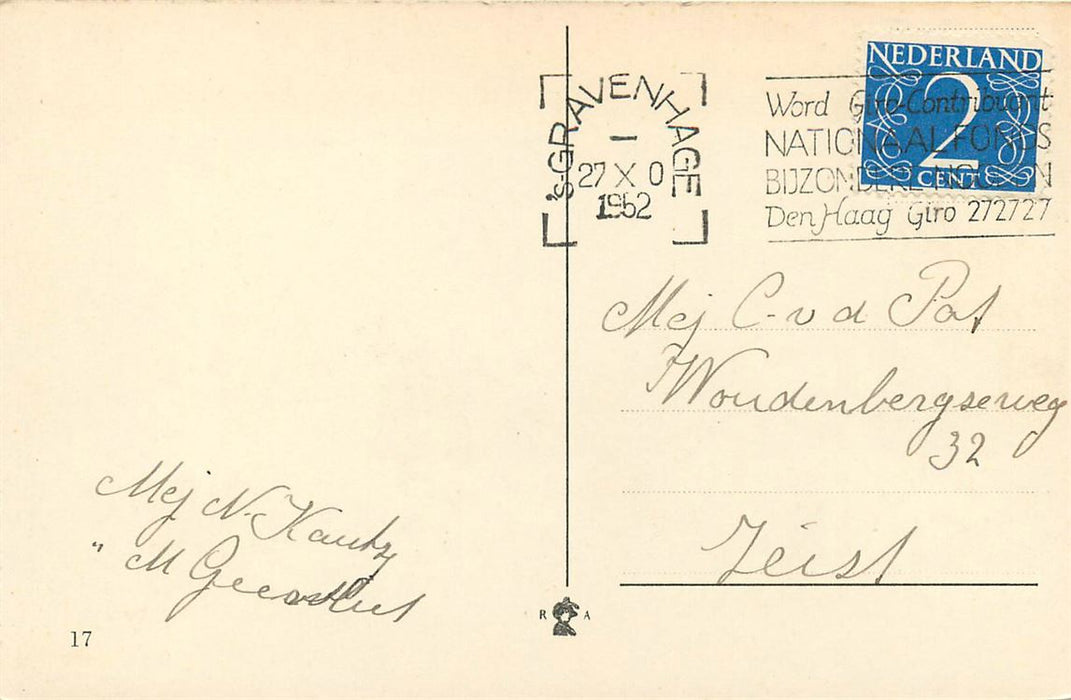 'S-GRAVENHAGE
27 X 0
1952
NEDERLAND
2
CENT
Word Giro-Contribuant
NATIONAAL FONDS
BIJZONDERE NOODEN
Den Haag Giro 272727
Mej C. v d Pot
Woudenbergseweg
32
Zeist
Mej N. Kautz
" M Geervliet
R A
17